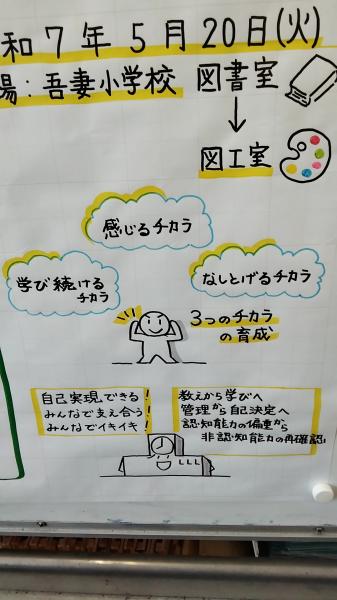 和7年5月20日(火)
場：吾妻小学校 図書室
↓
図工室
感じるチカラ
学び続ける
チカラ
なしとげるチカラ
3つのチカラ
の育成
自己実現できる!
みんなで支え合う!
みんなでイキイキ!
教えから学びへ
管理から自己決定へ
認知能力の偏重から
非認知能力の再確認!